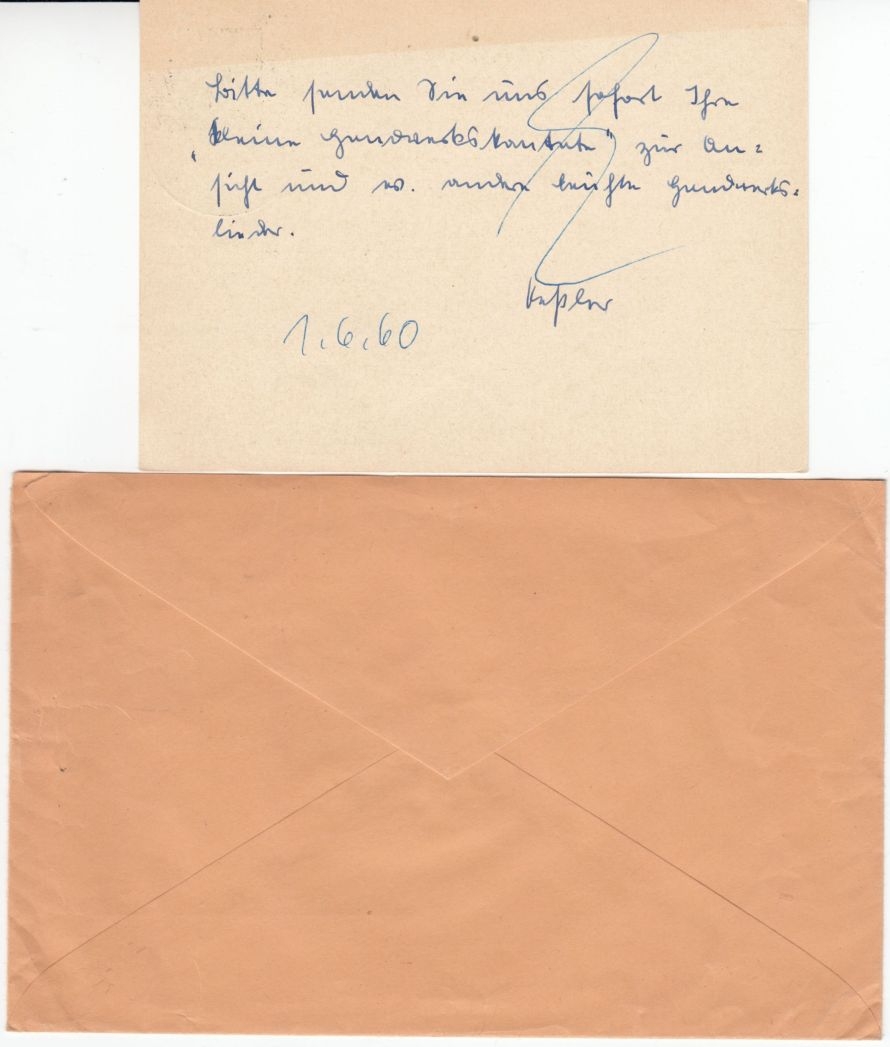 Bitte senden Sie uns sofort Ihre
„Kleine Handwerkskantate" zur An=
sicht und ev. andere leichte Handwerks=
lieder.
Keßler
1.6.60